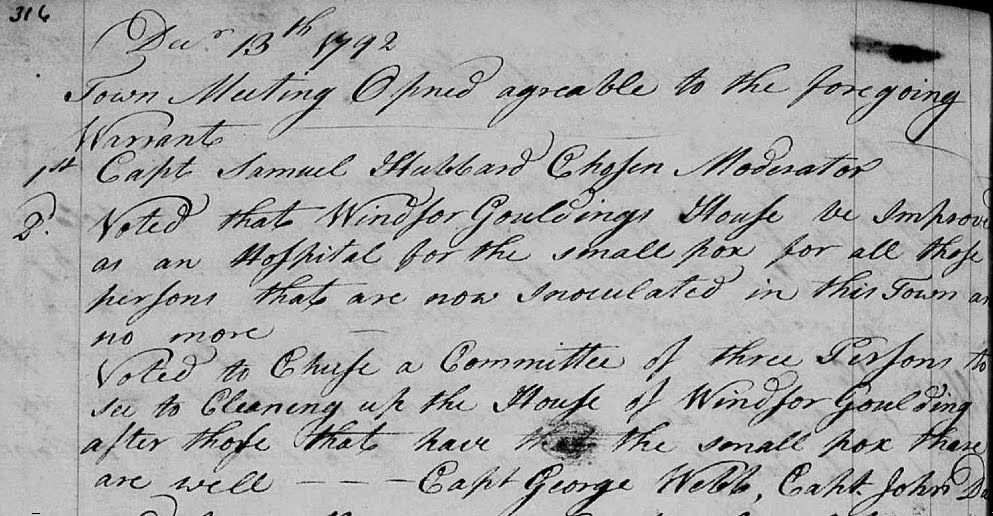 316
Decr 13th 1792
Town Meeting Opned agreable to the foregoing
Warrant
1st Capt Samuel Hubbard Chosen Moderator
2. Voted that Windsor Gouldings House be Improve
as an Hospital for the small pox for all those
persons that are now Inoculated in this Town an
no more —
Voted to Chuse a Committee of three Persons to
see to Cleaning up the House of Windsor Goulding
after those that have the small pox thare
are well — — — Capt George Webb, Capt. John